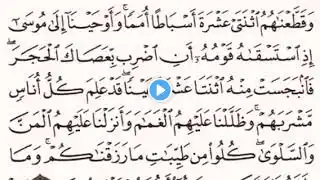 وَقَطَّعْنَٰهُمُ ٱثْنَتَىْ عَشْرَةَ أَسْبَاطًا أُمَمًا ۚ وَأَوْحَيْنَآ إِلَىٰ مُوسَىٰٓ
إِذِ ٱسْتَسْقَىٰهُ قَوْمُهُۥٓ أَنِ ٱضْرِب بِّعَصَاكَ ٱلْحَجَرَ ۖ
فَٱنۢبَجَسَتْ مِنْهُ ٱثْنَتَا عَيْنًا ۖ قَدْ عَلِمَ كُلُّ أُنَاسٍ
مَّشْرَبَهُمْ ۚ وَظَلَّلْنَا عَلَيْهِمُ ٱلْغَمَٰمَ وَأَنزَلْنَا عَلَيْهِمُ ٱلْمَنَّ
وَٱلسَّلْوَىٰ ۖ كُلُوا۟ مِن طَيِّبَٰتِ مَا رَزَقْنَٰكُمْ ۚ وَمَا